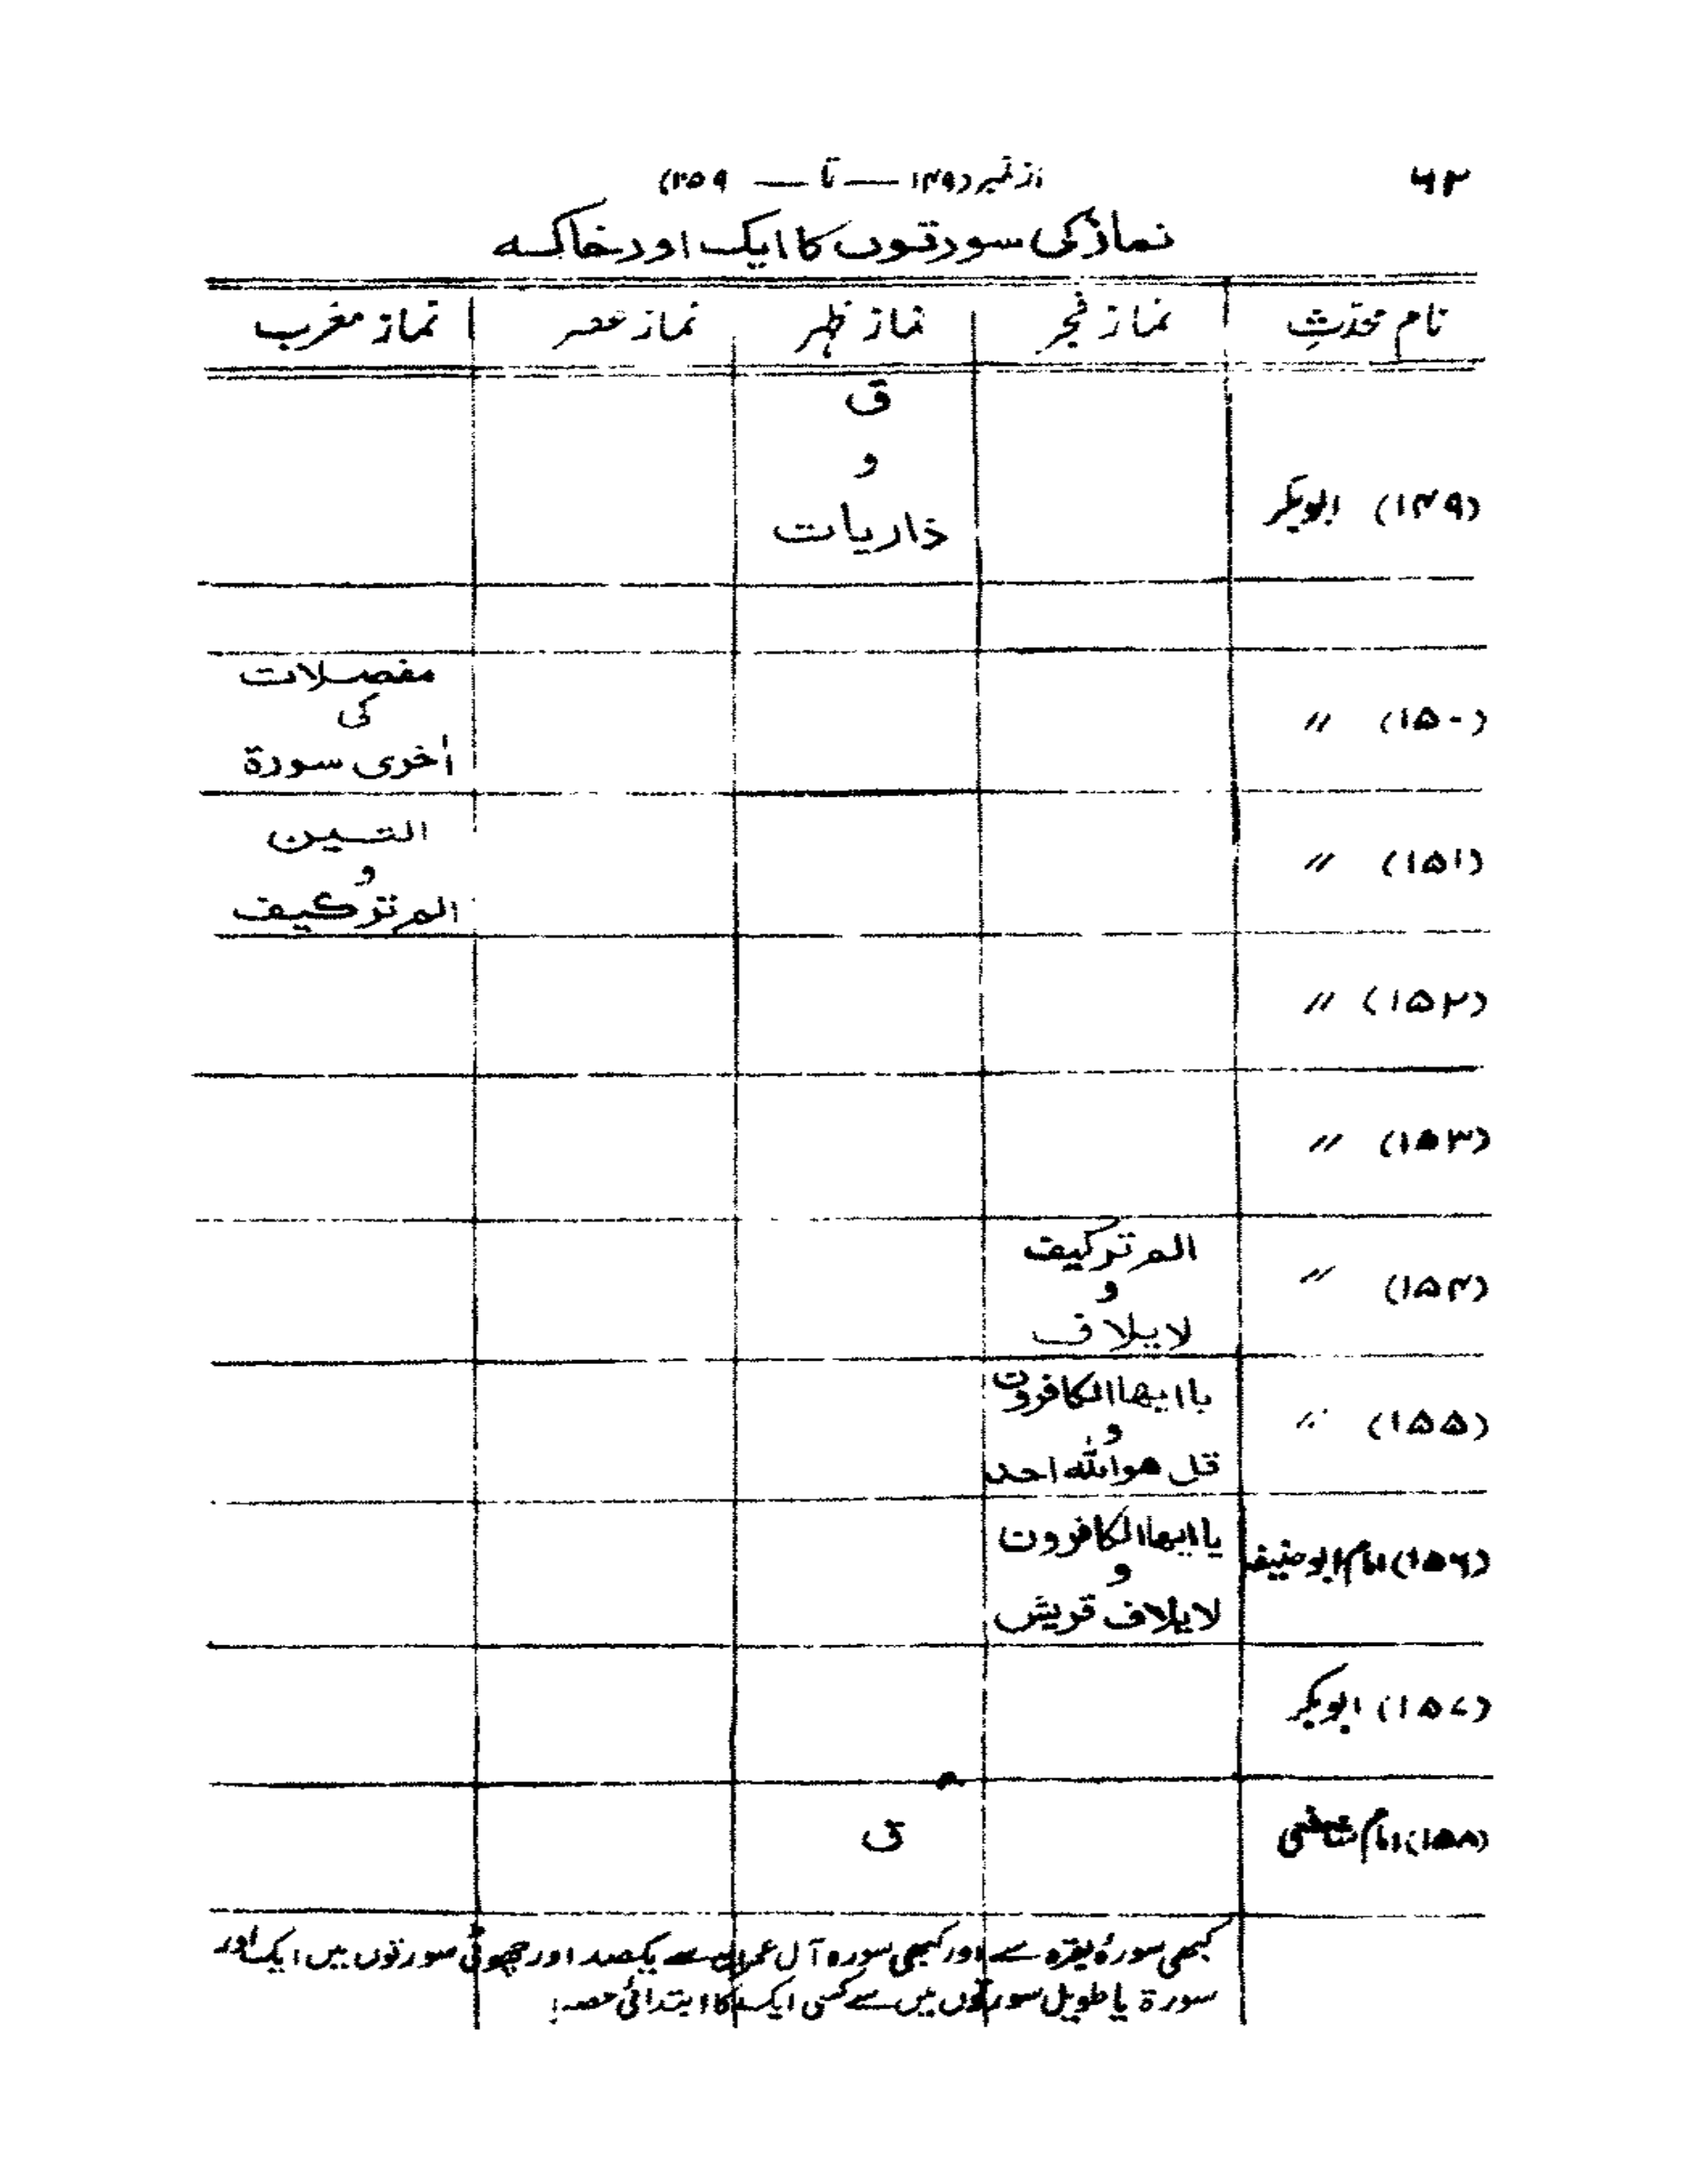 ۶۲
از نمبر (۱۴۹ — تا — ۲۵۹)
نماز کی سورتوں کا ایک اور خاکہ
نام محدّثِ نماز فجر نماز ظہر نماز عصر نماز مغرب
ق
و
(۱۴۹) ابوبکر ذاریات
مفصلات
کی
(۱۵۰) 〃
اٰخری سورة
التین
و
(۱۵۱) 〃
الم ترکیف
(۱۵۲) 〃
(۱۵۳) 〃
الم ترکیف
(۱۵۴) 〃 و
لایلاف
یاایھاالکافرون
(۱۵۵) 〃 و
قل ھواللہ احد
یاایھاالکافرون
(۱۵۶) امام ابوحنیفہ و
لایلاف قریش
(۱۵۷) ابوبکر
(۱۵۸) امام شافعی ق
کبھی سورۂ بقرہ سے اور کبھی سورہ آل عمران سے یکصد اور چھوٹی سورتوں میں ایک اور
سورة یا طویل سورتوں میں سے کسی ایک کا ابتدائی حصہ!